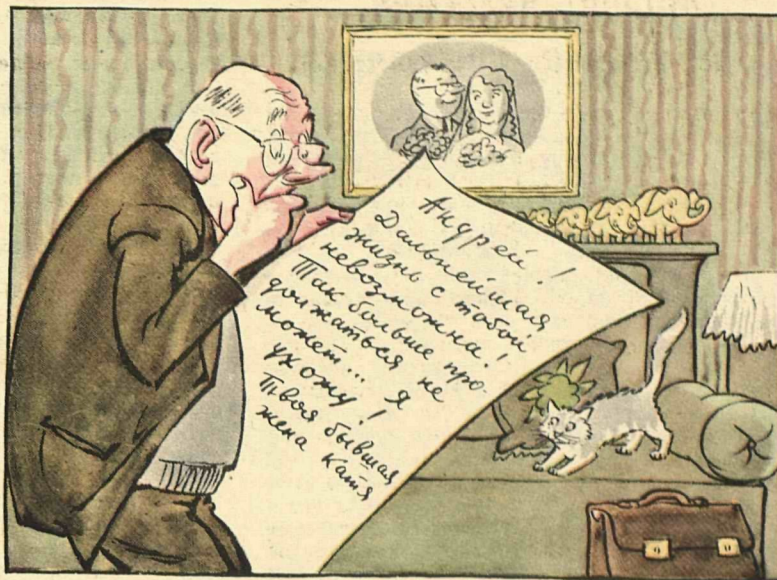 Андрей!
Дальнейшая
жизнь с тобой
невозможна!
Так больше про-
должаться не
может... Я
ухожу!
Твоя бывшая
жена Катя